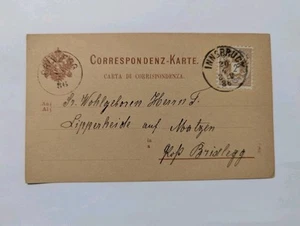 CORRESPONDENZ-KARTE.
CARTA DI CORRISPONDENZA.
INNSBRUCK
Sr. Wohlgeboren Herrn F.
Lipperheide auf Matzen
in
Post Brixlegg